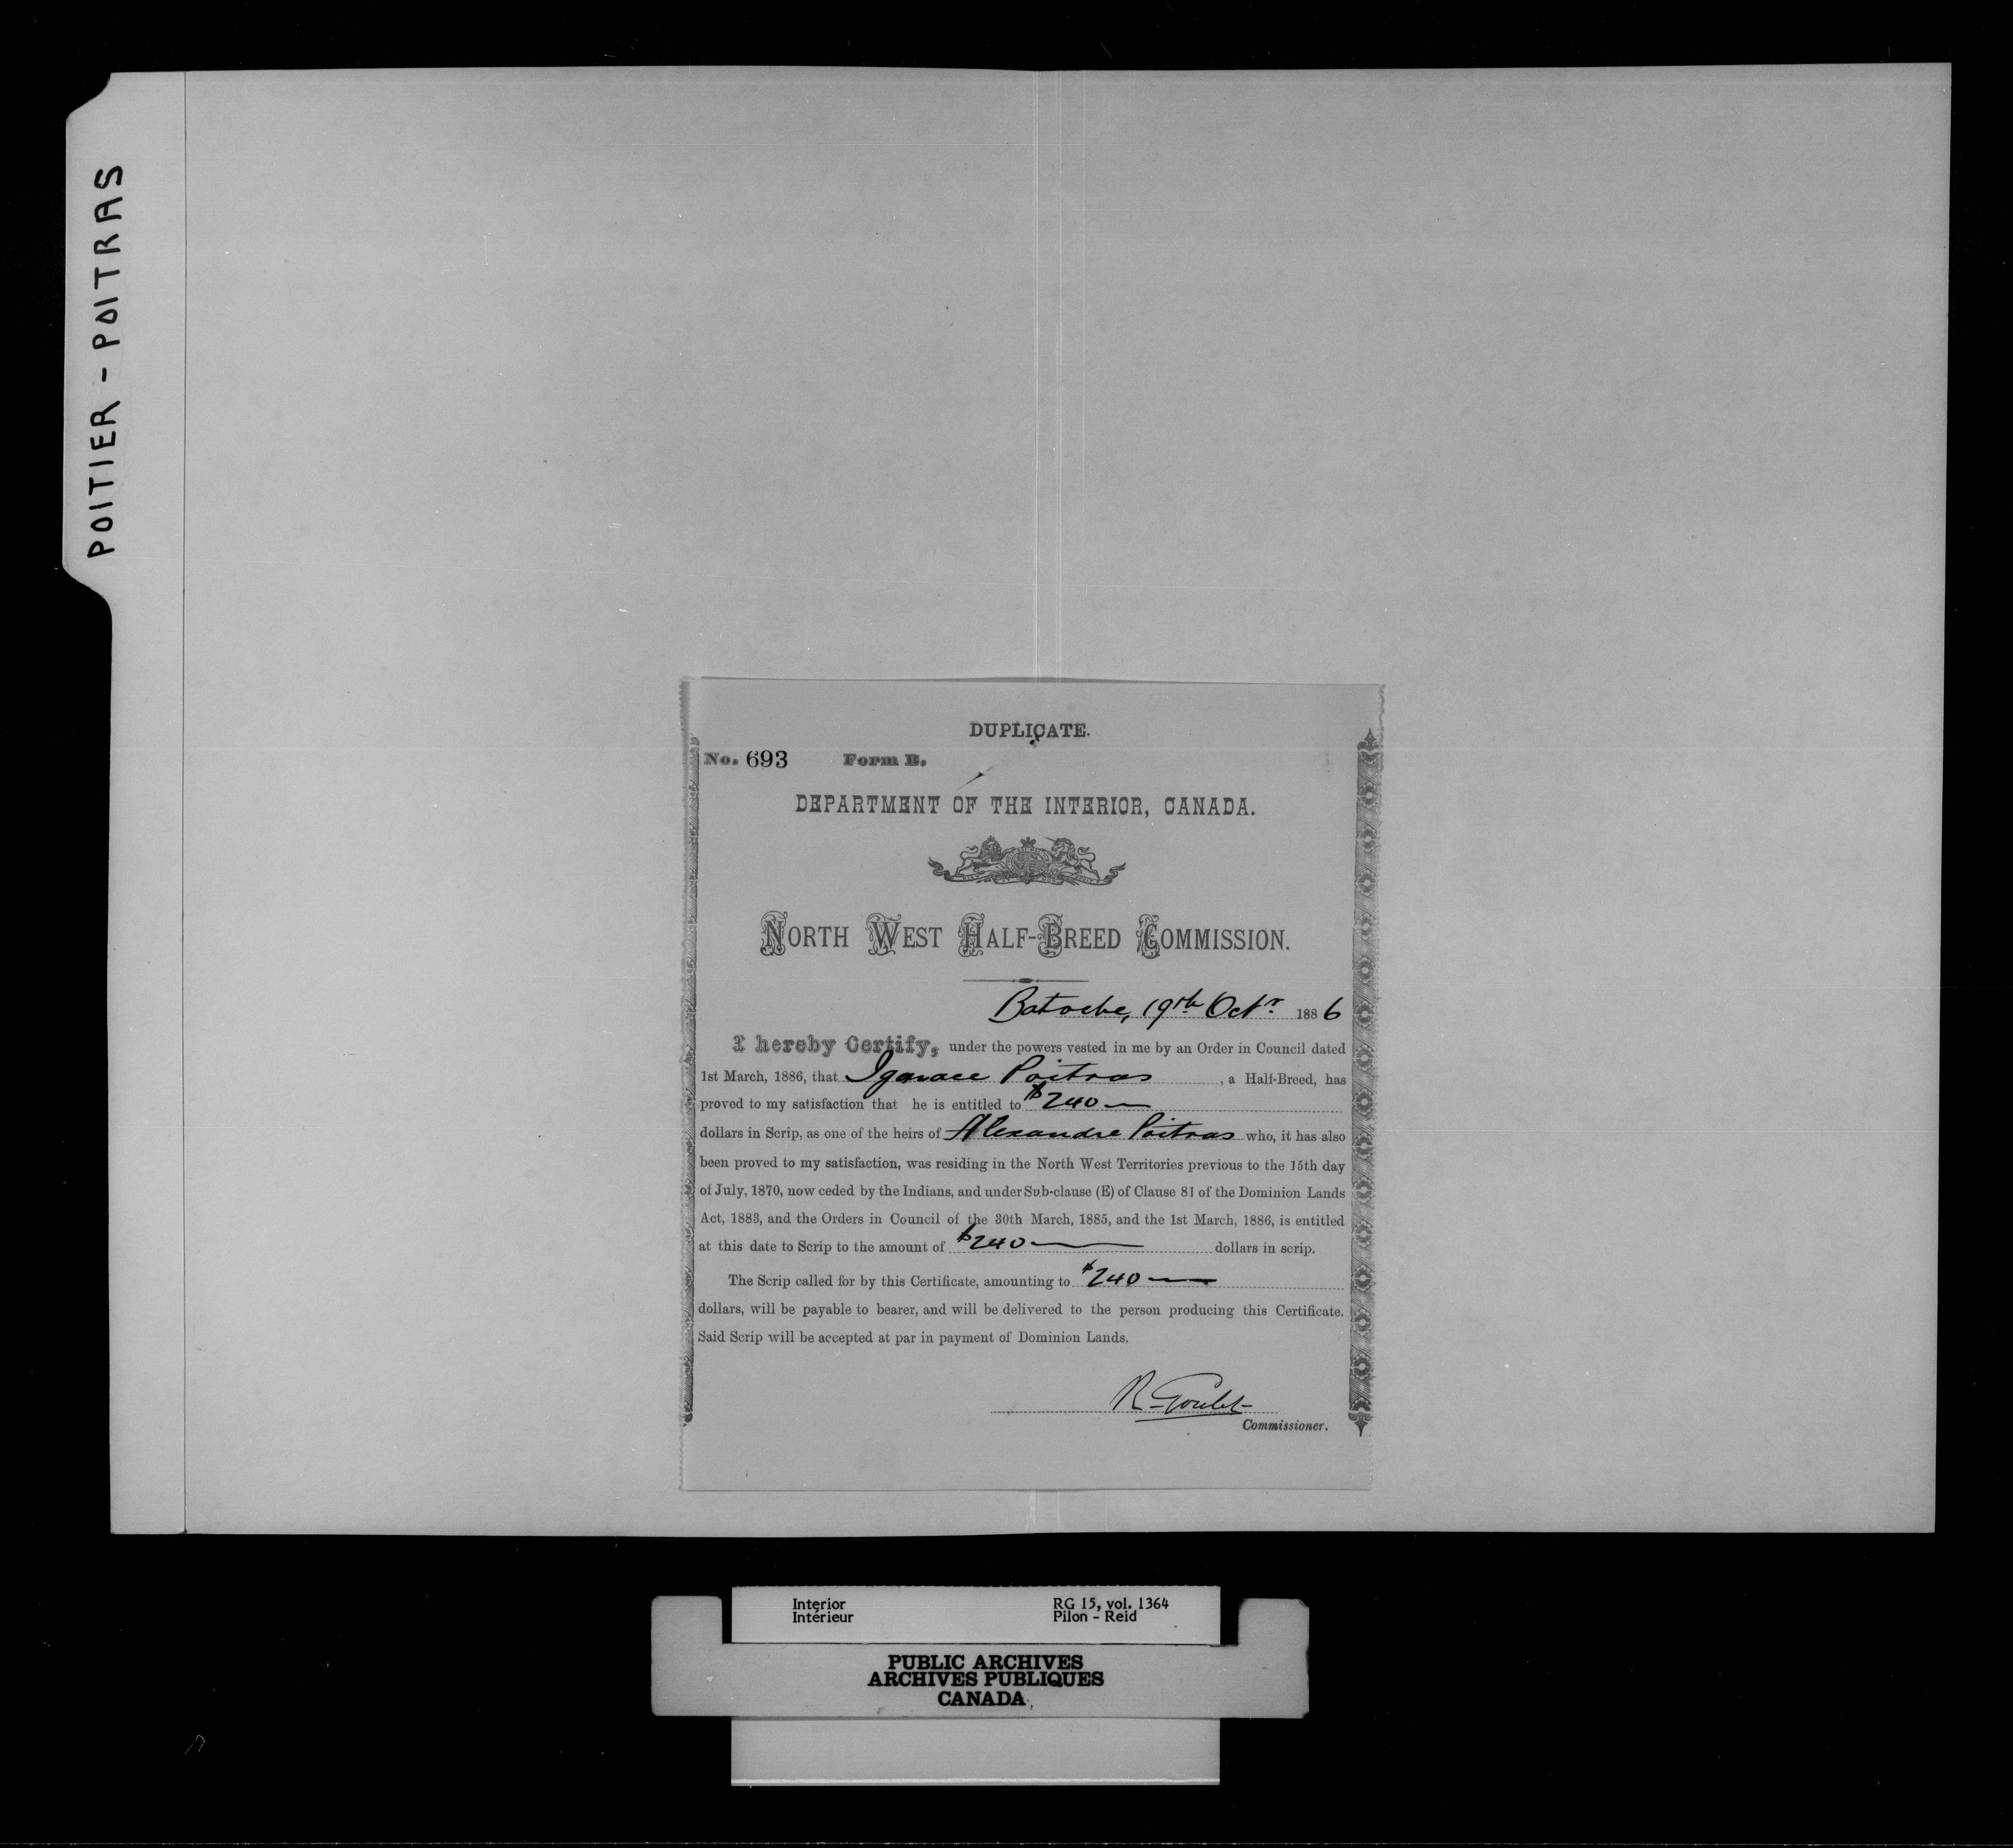 POITIER - POITRAS
DUPLICATE.
No. 693 Form B.
DEPARTMENT OF THE INTERIOR, CANADA.
NORTH WEST HALF-BREED COMMISSION.
Batoche, 19th Octr. 1886
I hereby Certify, under the powers vested in me by an Order in Council dated
1st March, 1886, that Ignace Poitras, a Half-Breed, has
proved to my satisfaction that he is entitled to $240—
dollars in Scrip, as one of the heirs of Alexandre Poitras who, it has also
been proved to my satisfaction, was residing in the North West Territories previous to the 15th day
of July, 1870, now ceded by the Indians, and under Sub-clause (E) of Clause 81 of the Dominion Lands
Act, 1883, and the Orders in Council of the 30th March, 1885, and the 1st March, 1886, is entitled
at this date to Scrip to the amount of $240— dollars in scrip.
The Scrip called for by this Certificate, amounting to $240—
dollars, will be payable to bearer, and will be delivered to the person producing this Certificate.
Said Scrip will be accepted at par in payment of Dominion Lands.
R. Goulet
Commissioner.
Interior RG 15, vol. 1364
Intérieur Pilon - Reid
PUBLIC ARCHIVES
ARCHIVES PUBLIQUES
CANADA